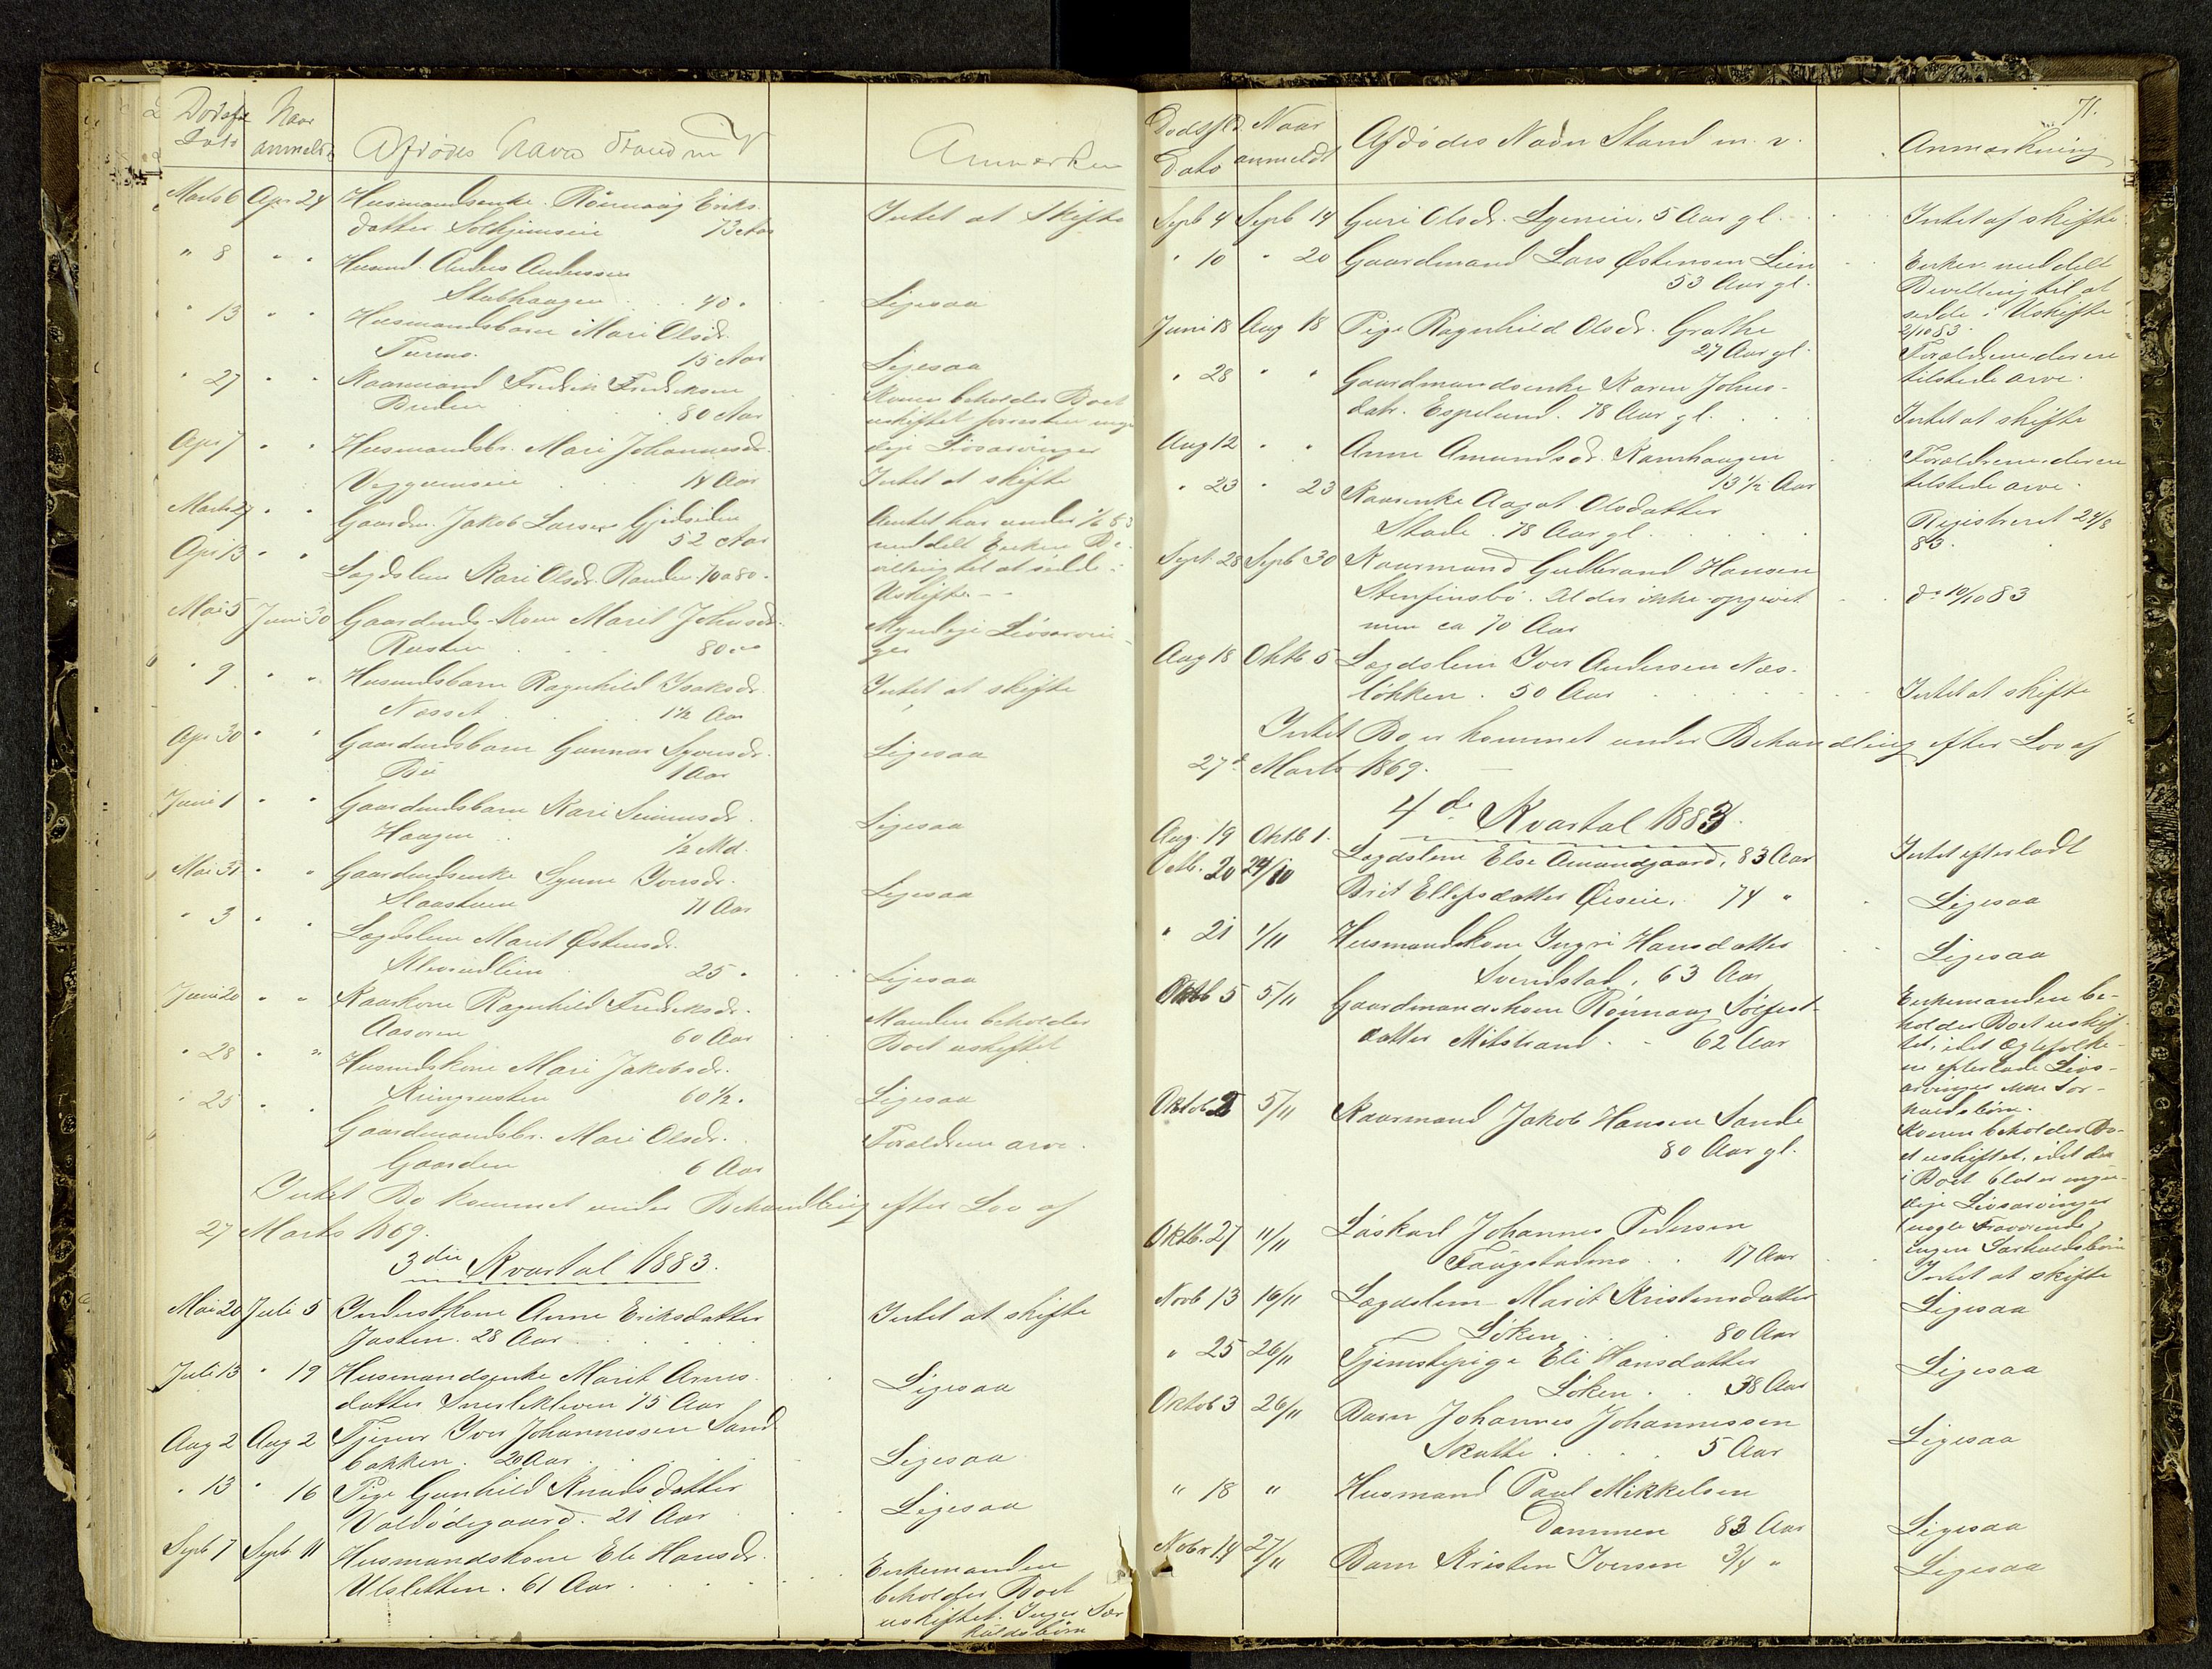 Dødsfd Naar
Dato anmeldt Afdødes Navn Stand m V Anmærkn
Marts 6 Apr 24 Husmandsenke Rönnaug Eriks-
datter Solhjemseie 73 Aar Intet at Skifte
" 8 " " Husmd. Anders Andersen
Stubhaugen 40 " Ligesaa
" 13 " " Husmandsbarn Mari Olsdr.
15 Aar Ligesaa
" 27 " " Kaarmand Fredrik Fredriksen Konen beholder Boet
80 Aar uskiftet forresten
Apr 7 " " Husmandsbr. Mari Johannesdr. Livsarvinger
18 Aar Intet at skifte
Marts 27 " " Gaardm. Jakob Larsen Gjedseilen Amtet har under 1/6 83
52 Aar meddelt Enken Be-
Apr 13 " " Lægdslem Kari Olsdr. Randen 70 a 80 villing til at sidde i
Uskifte
Mai 5 Juni 30 Gaardmds. Kone Marit Johnsdr. Myndige Livsarvin-
Rusten 80 ger
" 9 " " Husmdsbarn Ragnhild Isaksdr. Intet at skifte
Næsset 1 1/2 Aar
Apr 30 " " Gaardmdsbarn Gunnar Syversdr. Ligesaa
Bö 1 Aar
Juni 1 " " Gaardmdsbarn Kari Simensdr. Ligesaa
Haugen 1/2 Md.
Mai 31 " " Gaardmdsenke Synne Iversdr. Ligesaa
Slaasteen 71 Aar
" 3 " " Lægdslem Marit Østensdr.
25 " Ligesaa
Juni 20 " " Kaarkone Ragnhild Fredriksdr. Manden beholder
Aasoren 60 Aar Boet uskiftet
" 28 " " Husmdskone Mari Jakobsdr.
Ringrusten 60 1/2 " Ligesaa
" 25 " " Gaardmandsbr. Mari Olsdr. Forældrene arve.
Gaarden 6 Aar
Intet Bo kommet under Behandling efter Lov af
27 Marts 1869.
3die Kvartal 1883.
Mai 20 Juli 5 Inderstkone Anne Eriksdatter Intet at skifte
28 Aar
Juli 13 " 19 Husmandsenke Marit Arnes- Ligesaa
datter Snerlekleven 75 Aar
Aug 2 Aug 2 Tjener Iver Johannessen Sand-
bakken. 20 Aar Ligesaa
" 13 " 16 Pige Gunhild Knudsdatter
Valbödegaard. 21 Aar Ligesaa
Septb 7 Septb 11 Husmandskone Eli Hansdr. Enkemanden
Ulsletten. 61 Aar beholder Boet
uskiftet. Ingen Sær-
kuldsbörn
71.
Dødsfld. Naar
Dato anmeldt Afdödes Navn Stand m. v. Anmærkning
Septb 4 Septb 14 Guri Olsdr. 5 Aar gl. Intet at skifte
" 10 " 20 Gaardmand Lars Østensen Lien Enken meddelt
53 Aar gl. Bevilling til at
sidde i Uskifte
2/10 83.
Juni 18 Aug 18 Pige Ragnhild Olsdr. Grothe Forældrene derere
27 Aar gl. tilstede arve.
" 28 " " Gaardmandsenke Karen Johns-
datr. Espelund. 78 Aar gl. Intet at skifte
Aug 12 " " Anne Amundsdr. Kamhaugen Forældrene derere
13 1/2 Aar tilstede arve.
" 23 " 23 Kaarenke Aagot Olsdatter Registreret 24/8
Stade. 78 Aar gl. 83.
Sept 28 Septb 30 Kaarmand Gulbrand Hansen
Stenfinsbö. Alder ikke opgivet do 10/10 83
men ca 70 Aar
Aug 18 Oktb 5 Lægdslem Iver Andersen Næs-
lökken. 50 Aar Intet at skifte
Intet Bo er kommet under Behandling efter Lov af
27de Marts 1869.
4de Kvartal 1883.
Aug. 19 Oktb 1. Lægdslem Else Amundgaard, 83 Aar Intet efterladt
Octb. 20 24/10 Brit Ellefsdatter Öiseie, 74 " Ligesaa
" 21 1/11 Husmandskone Ingri Hansdatter Ligesaa
Sveridstad, 63 Aar
Oktb 5 5/11 Gaardmandskone Rönnaug Sölfest- Enkemanden be-
datter Mitstrand 62 Aar holder Boet uskif-
tet, idet Ægtefolke-
ne efterlade Livs-
arvinger men Sær-
kuldsbörn.
Oktob 2 5/11 Kaarmand Jakob Hansen Sande Konen beholder Bo-
80 Aar gl. et uskiftet, idet der
i Boet blot er myn-
dige Livsarvinger
(nogle Fraværende)
ingen Særkuldsbörn
Oktb. 27 11/11 Löskarl Johannes Pedersen
Faugstadmo 17 Aar Intet at skifte
Novb 13 16/11 Lægdslem Marit Kristensdatter Ligesaa
Löken 80 Aar
" 25 26/11 Tjenestepige Eli Hansdatter Ligesaa
Löken 38 Aar
Oktob 3 26/11 Barn Johannes Johannessen
Skotte 5 Aar Ligesaa
" 18 " Husmand Paul Mikkelsen
Dammen 83 Aar Ligesaa
Novbr 14 27/11 Barn Kristen Iversen 3/4 " Ligesaa